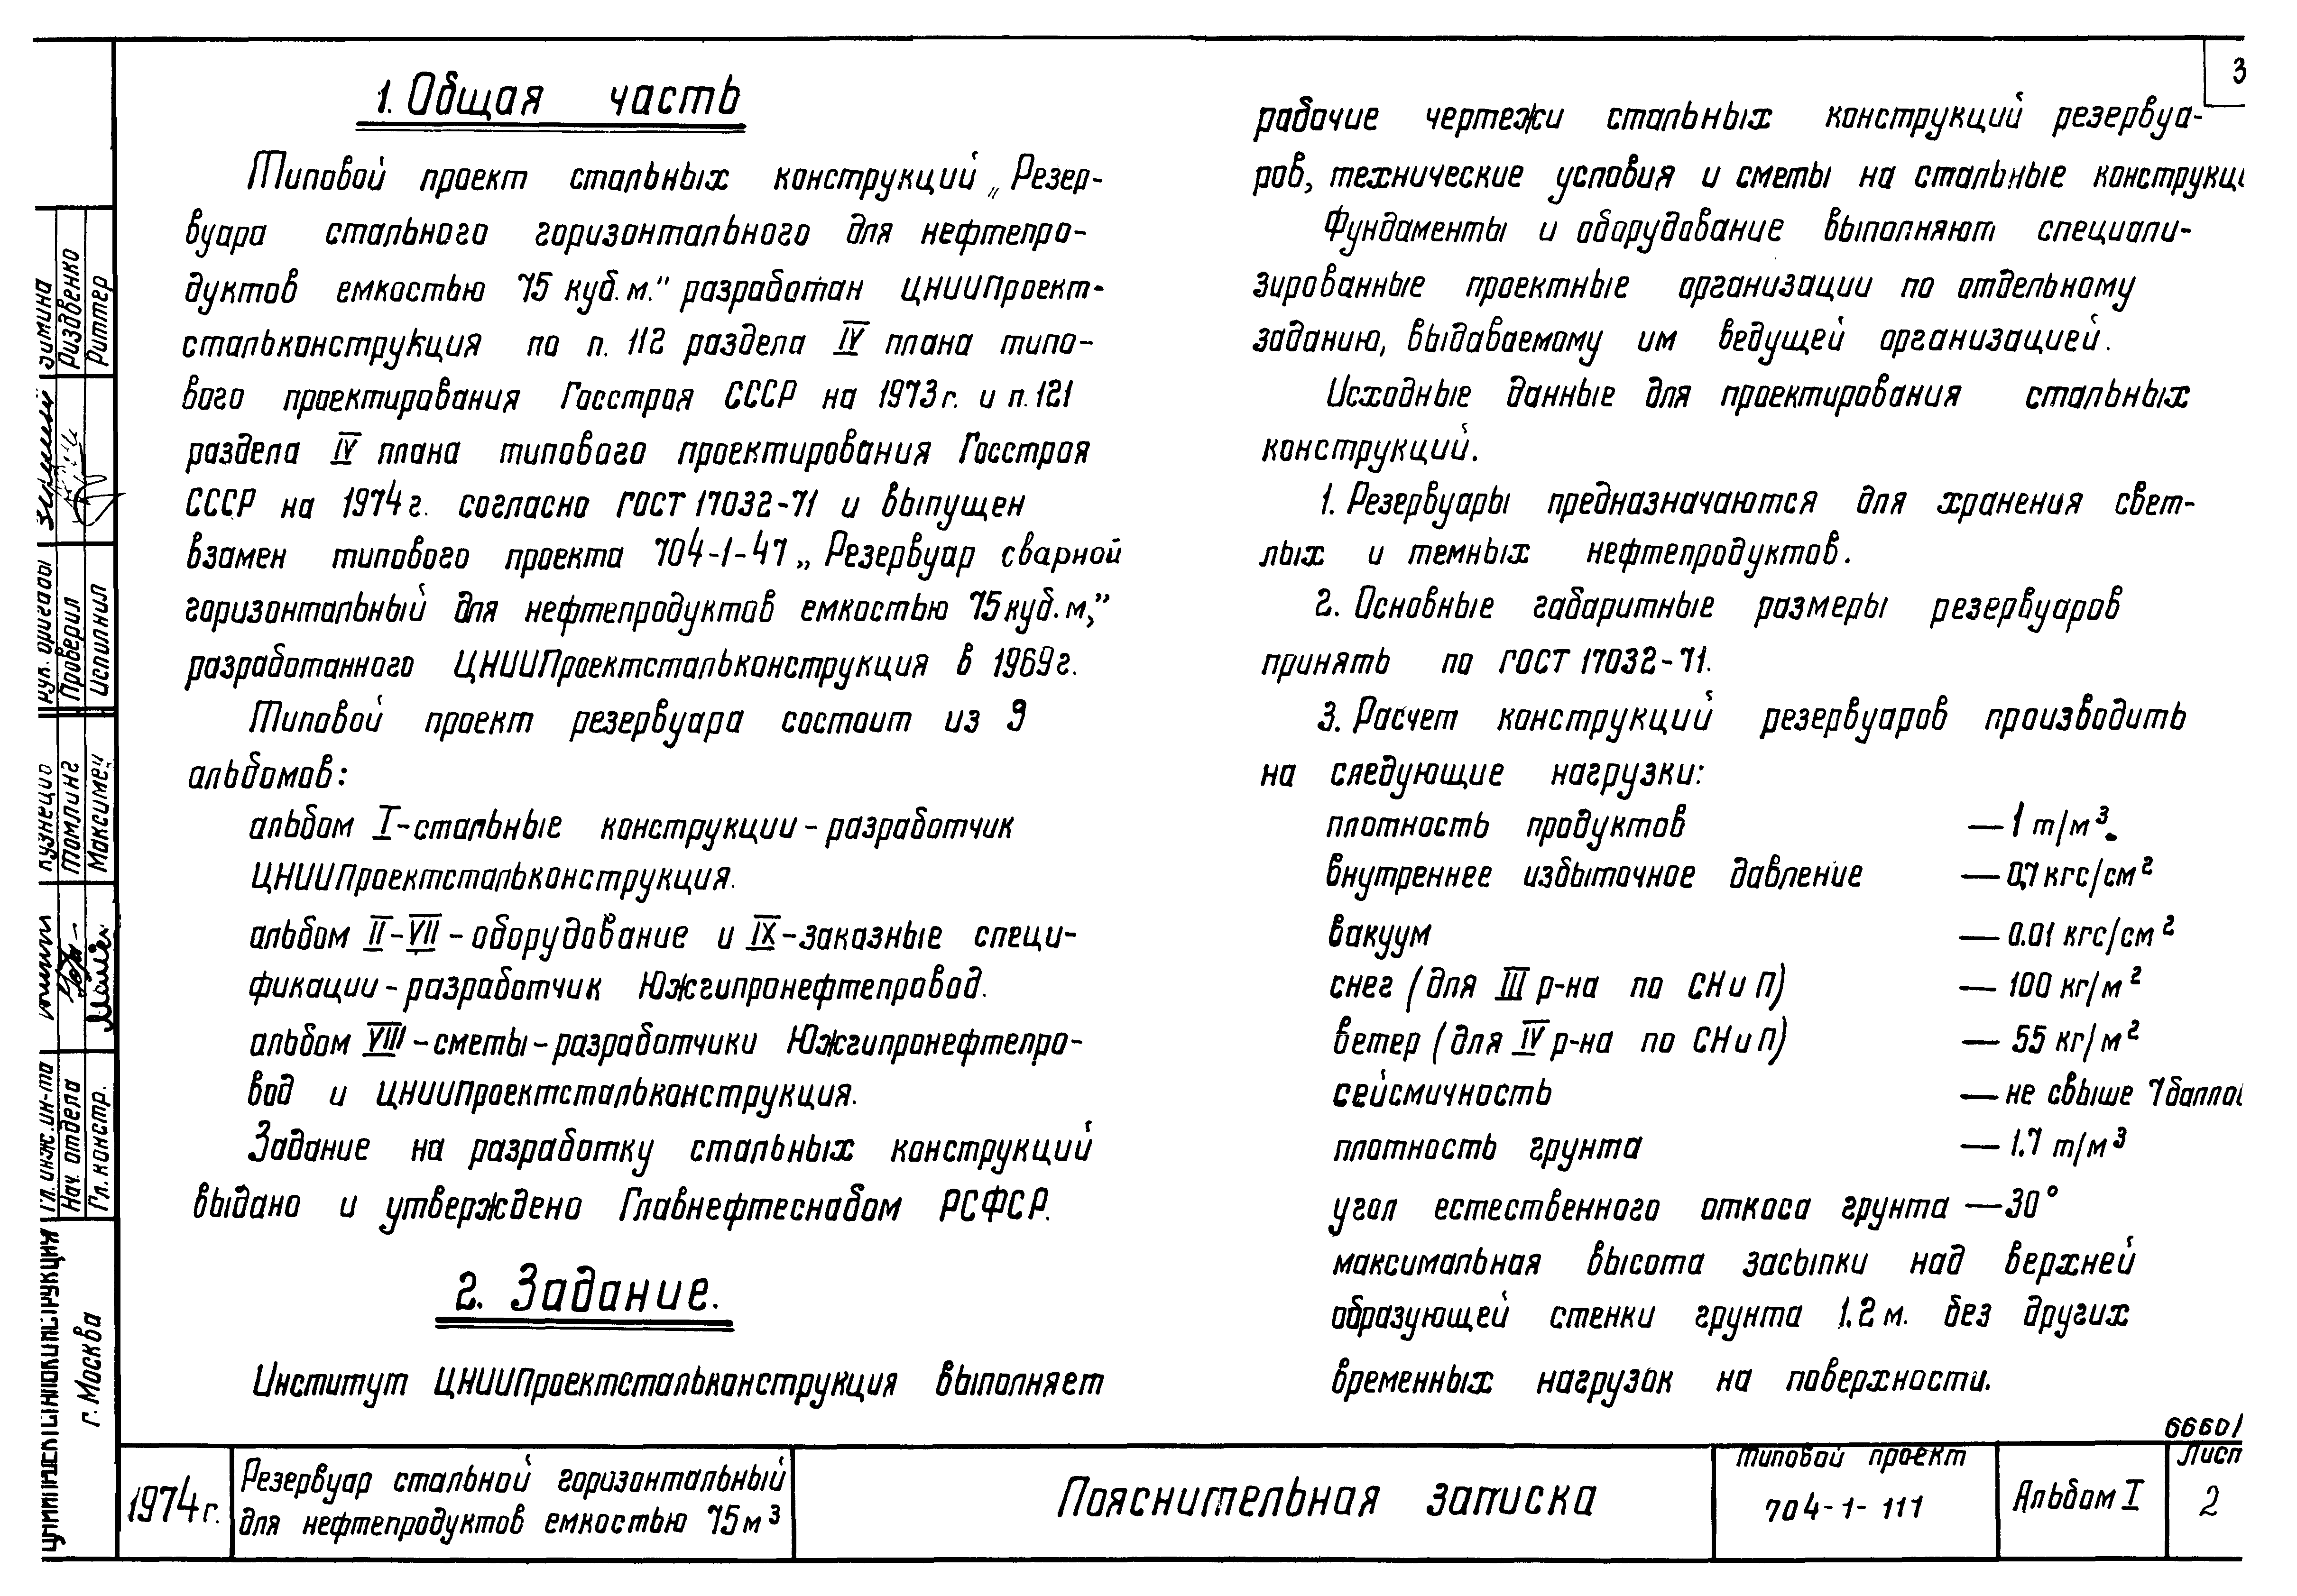 3
1. Общая часть
Типовой проект стальных конструкций „Резер-
вуара стального горизонтального для нефтепро-
дуктов емкостью 75 куб.м.” разработан ЦНИИПроект-
стальконструкция по п. 112 раздела IV плана типо-
вого проектирования Госстроя СССР на 1973 г. и п. 121
раздела IV плана типового проектирования Госстроя
СССР на 1974 г. согласно ГОСТ 17032-71 и выпущен
взамен типового проекта 704-1-47 „Резервуар сварной
горизонтальный для нефтепродуктов емкостью 75 куб.м,”
разработанного ЦНИИПроектстальконструкция в 1969 г.
Типовой проект резервуара состоит из 9
альбомов:
альбом I-стальные конструкции - разработчик
ЦНИИПроектстальконструкция.
альбом II-VII - оборудование и IX-заказные специ-
фикации - разработчик Южгипронефтепровод.
альбом VIII - сметы - разработчики Южгипронефтепро-
вод и ЦНИИПроектстальконструкция.
Задание на разработку стальных конструкций
выдано и утверждено Главнефтеснабом РСФСР.
2. Задание.
Институт ЦНИИПроектстальконструкция выполняет
рабочие чертежи стальных конструкций резервуа-
ров, технические условия и сметы на стальные конструкци
Фундаменты и оборудование выполняют специали-
зированные проектные организации по отдельному
заданию, выдаваемому им ведущей организацией.
Исходные данные для проектирования стальных
конструкций.
1. Резервуары предназначаются для хранения свет-
лых и темных нефтепродуктов.
2. Основные габаритные размеры резервуаров
принять по ГОСТ 17032-71.
3. Расчет конструкций резервуаров производить
на следующие нагрузки:
плотность продуктов — 1 т/м³.
внутреннее избыточное давление — 0,7 кгс/см²
вакуум — 0.01 кгс/см²
снег (для III р-на по СНиП) — 100 кг/м²
ветер (для IV р-на по СНиП) — 55 кг/м²
сейсмичность — не свыше 7 баллов
плотность грунта — 1.7 т/м³
угол естественного откоса грунта — 30°
максимальная высота засыпки над верхней
образующей стенки грунта 1.2 м. без других
временных нагрузок на поверхности.
66601
1974 г.
Резервуар стальной горизонтальный
для нефтепродуктов емкостью 75 м³
Пояснительная записка
Типовой проект
704-1-111
Альбом I
Лист
2
г. Москва
Гл. инж. ин-та
Нач. отдела
Гл. констр.
Томлинг
Проверил
Исполнил
Зимина
Риздвенко
Риттер